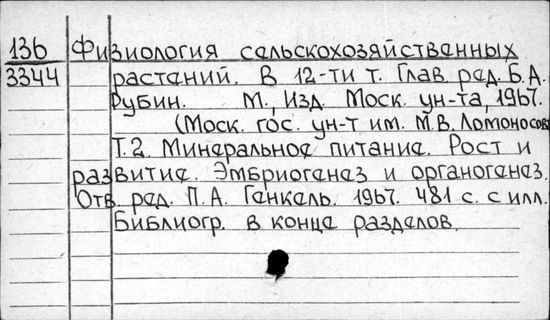 136 Физиология сельскохозяйственных
3344 растений. В 12-ти т. Глав. ред. Б.А.
Рубин. М., Изд. Моск. ун-та, 1967.
(Моск. гос. ун-т им. М.В. Ломоносова
Т.2. Минеральное питание. Рост и
развитие. Эмбриогенез и органогенез.
Отв. ред. П.А. Генкель. 1967. 481 с. с илл.
Библиогр. в конце разделов.